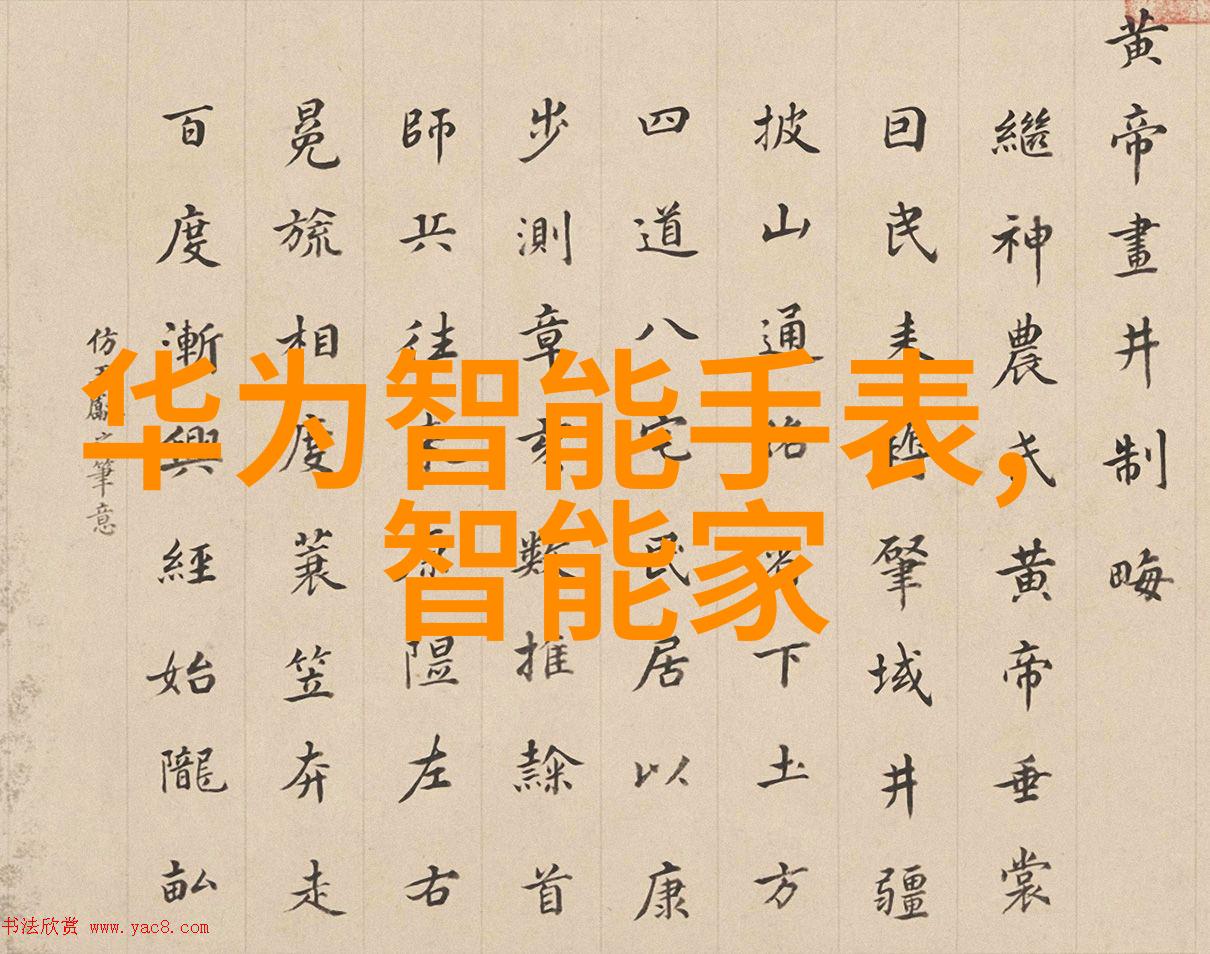 黄帝畫井制畮
繼神農氏黄帝垂裳
囙民肇域井疆
披山通下土方
四道八宅民居以康
步測章亥數推隸首
師兵往來原隰左右
冕旒相度蓑笠奔走
百度漸興經始隴畝
仿王獻之筆意
华为智能手表,
智能家
书法欣赏 www.yac8.com